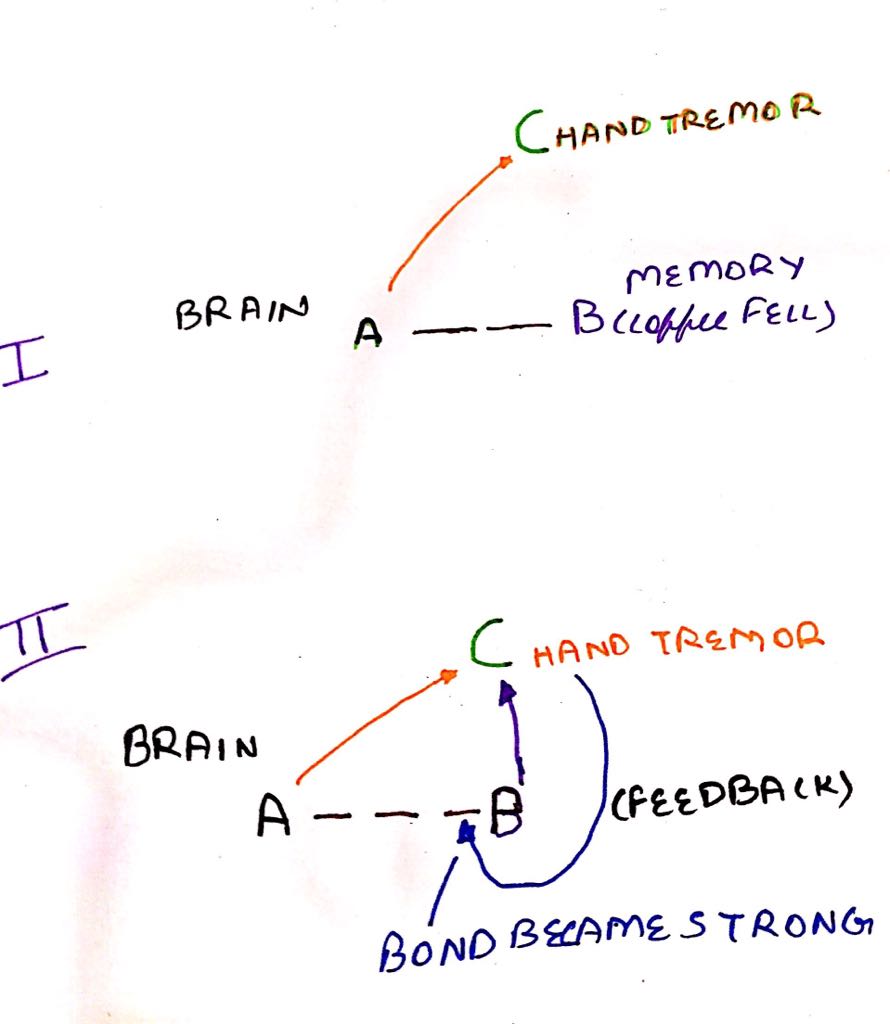 C HAND TREMOR
MEMORY
BRAIN
A B (Coffee FELL)
I
II
C HAND TREMOR
BRAIN
(FEEDBACK)
A B
BOND BECAME STRONG